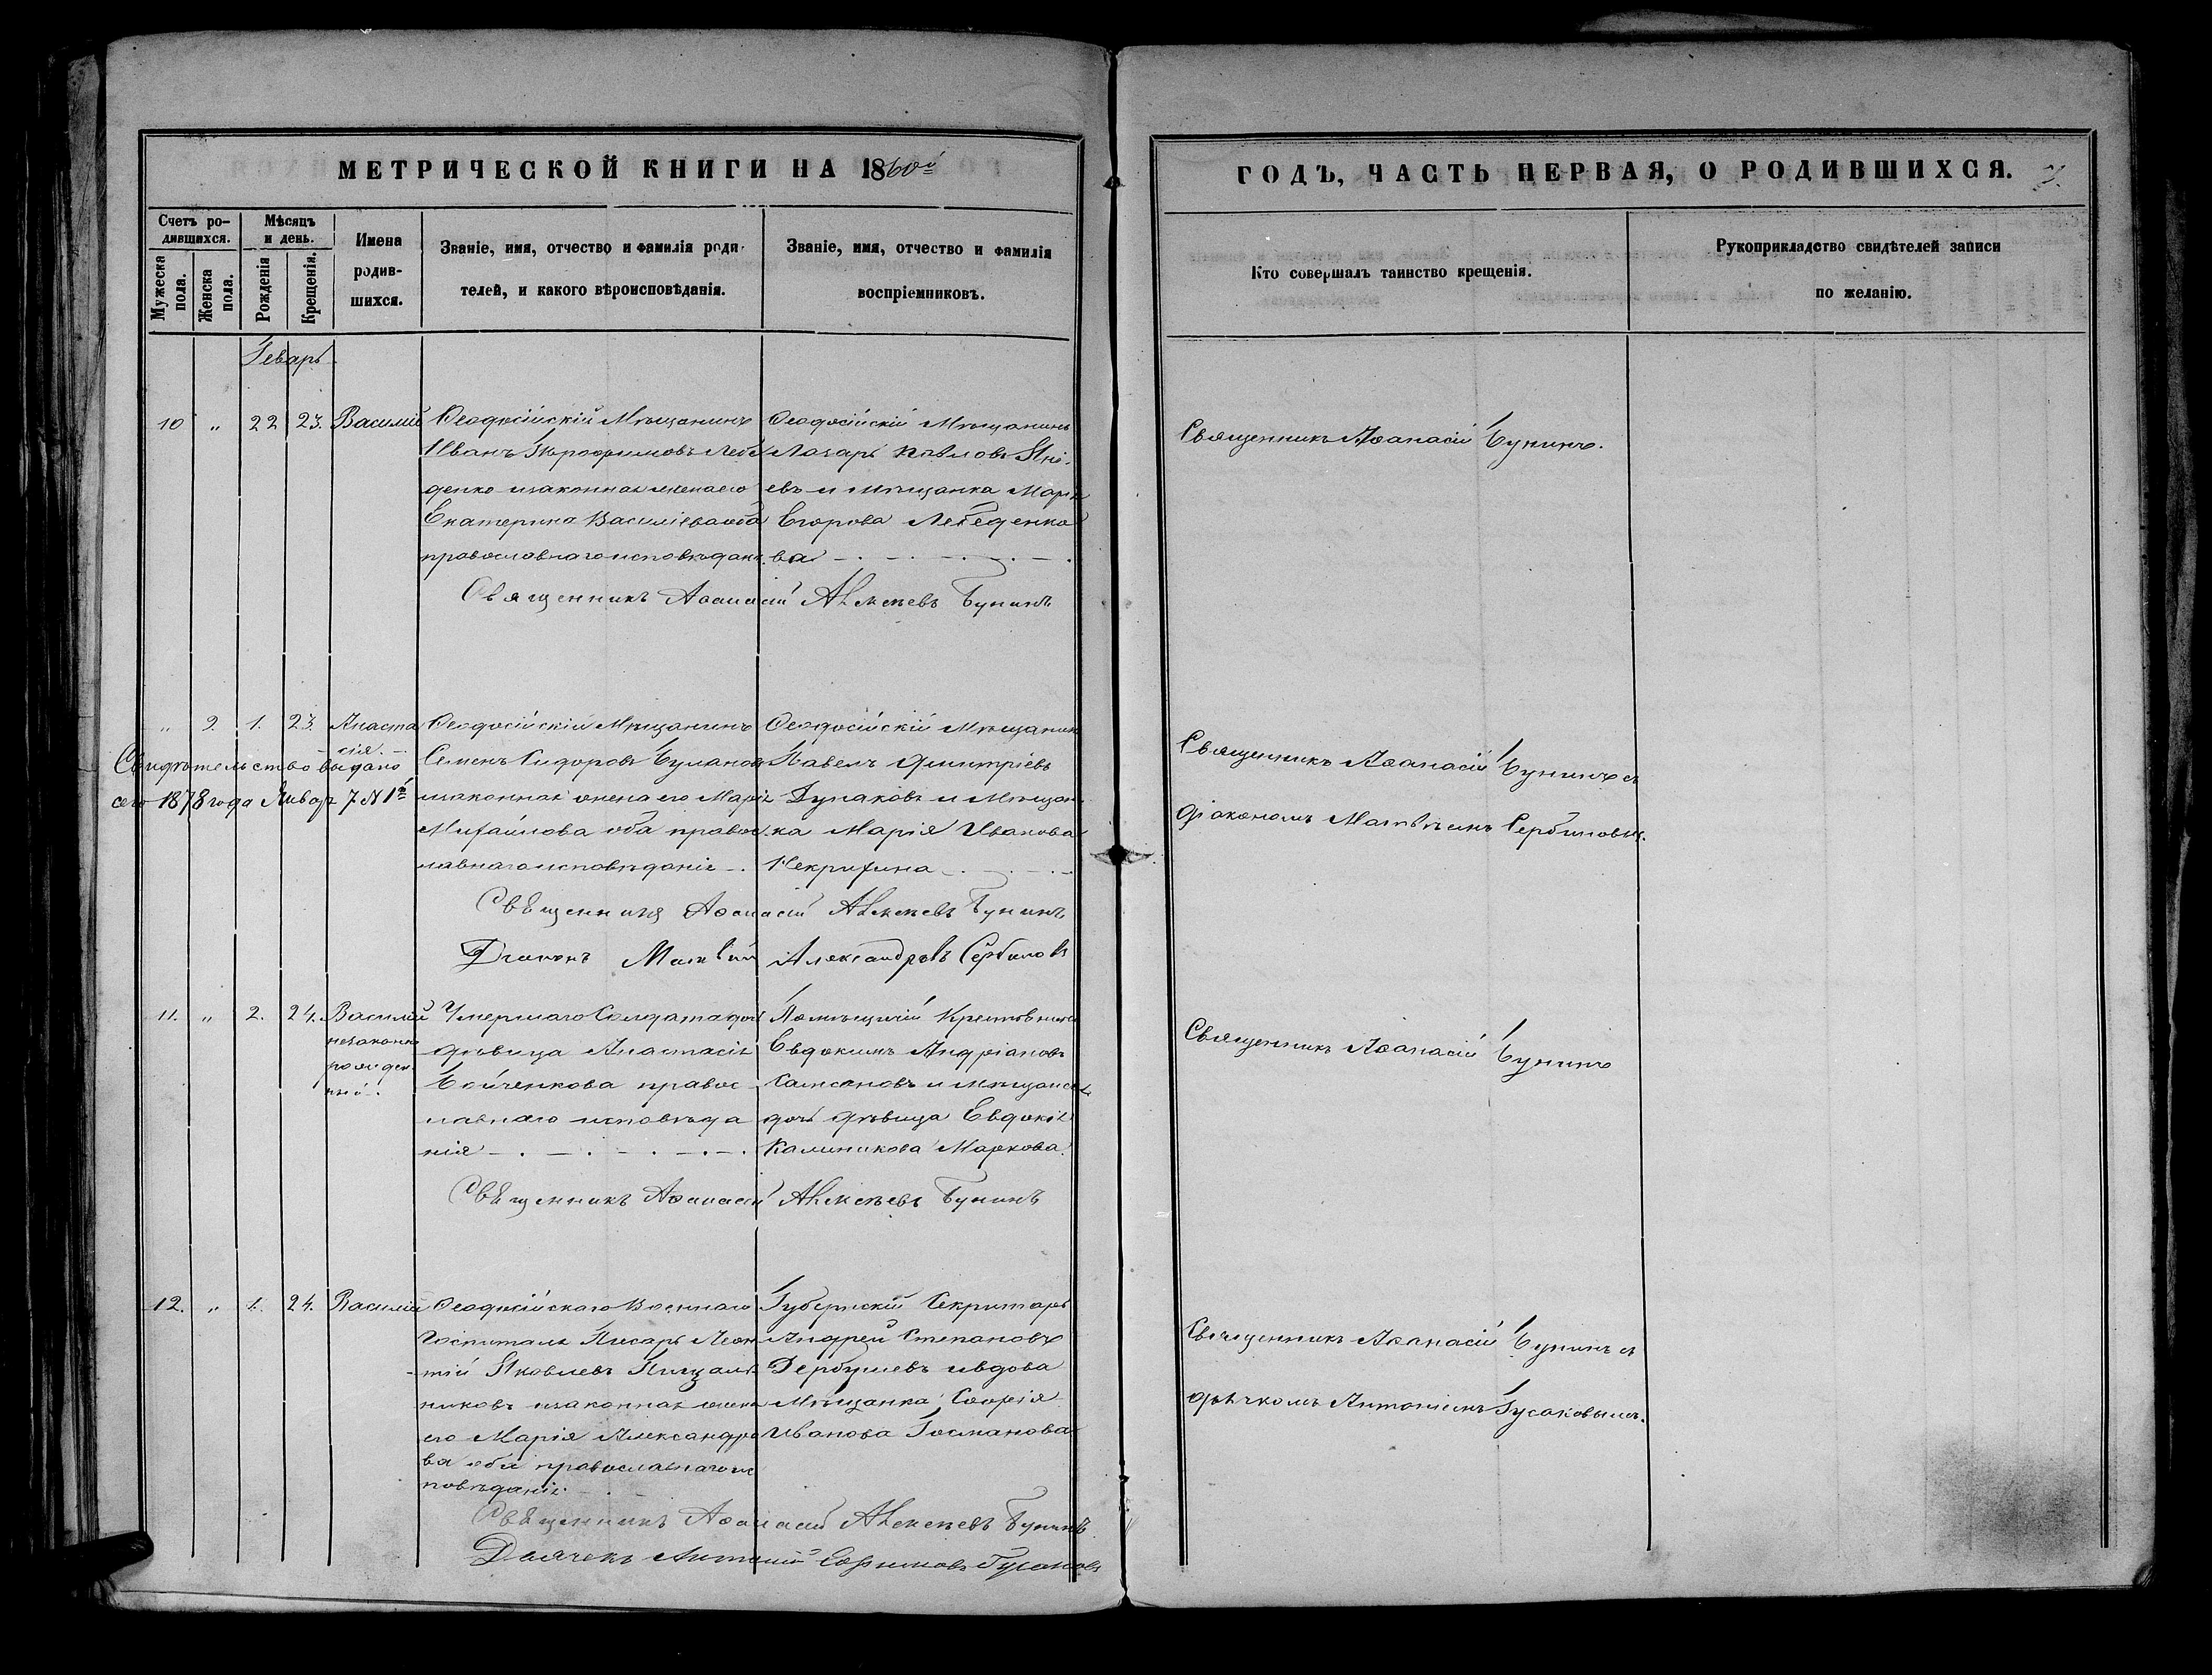 МЕТРИЧЕСКОЙ КНИГИ НА 1860й
ГОДЪ, ЧАСТЬ ПЕРВАЯ, О РОДИВШИХСЯ.
Счетъ ро-
дившихся.
Мѣсяцъ
и день.
Мужеска
пола.
Женска
пола.
Рожденія
Крещенія.
Имена
родив-
шихся.
Званіе, имя, отчество и фамилія роди-
телей, и какого вѣроисповѣданія.
Званіе, имя, отчество и фамилія
воспріемниковъ.
Кто совершалъ таинство крещенія.
Рукоприкладство свидѣтелей записи
по желанію.
10 " 22 23. Василій
Ѳеодосійскій Мѣщанинъ
Иванъ Лебе
денко и законная жена его
Екатерина Василіева оба
православнаго исповѣдан.
Ѳеодосійскій Мѣщанинъ
Лазарь Павловъ
евъ и мѣщанка Марія
Егорова Лебеденко
ва
Священникъ Аѳанасій Бунинъ.
Священникъ Аѳанасій Алексѣевъ Бунинъ
" 9. 1. 23. Анаста
сія.
Свидѣтельство выдано
сего 1878 года Январ 7 № 1й
Ѳеодосійскій Мѣщанинъ
Семенъ Сидоровъ Буланов
и законная жена его Марія
Михайлова оба правос
лавнаго исповѣданія.
Ѳеодосійскій Мѣщанин
Павелъ Дмитріевъ
и Мѣщан
ка Марія Иванова
Священникъ Аѳанасій Бунинъ съ
діакономъ Матвѣемъ Сербиновым.
Священникъ Аѳанасій Алексѣевъ Бунинъ
Діаконъ Матвій Александровъ Сербиновъ
11. " 2. 24. Василій
незаконно
рожден
ный.
Умершаго Солдата доч
дѣвица Анастасія
Бойченкова правос
лавнаго исповѣда
нія
Помѣщичій
Евдокимъ Андріановъ
Самсоновъ и мѣщанск
дочь дѣвица Евдокія
Калиникова Маркова.
Священникъ Аѳанасій Бунинъ
Священникъ Аѳанасій Алексѣевъ Бунинъ
12. " 1. 24. Василій
Ѳеодосійскаго Военнаго
Госпиталя Писарь Леон
тій Яковлевъ Пищаль
никовъ и законная жена
его Марія Александро
ва оба православнаго ис
повѣданія.
Губернскій Секритарь
Андрей Степановъ
и вдова
Мѣщанка Софія
Иванова Госманова
Священникъ Аѳанасій Бунинъ съ
дьячкомъ Антоніемъ Гусаковымъ.
Священникъ Аѳанасій Алексѣевъ Бунинъ
Дьячекъ Антоній Ефимовъ Гусаковъ